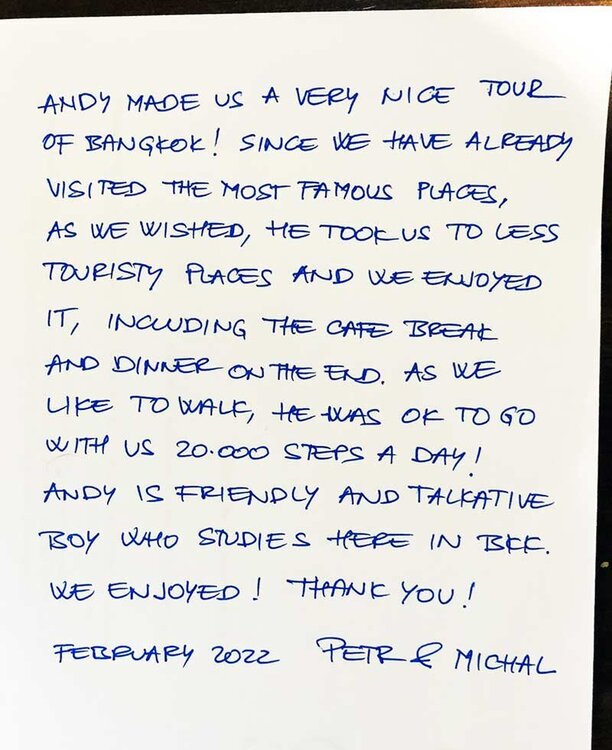 ANDY MADE US A VERY NICE TOUR
OF BANGKOK! SINCE WE HAVE ALREADY
VISITED THE MOST FAMOUS PLACES,
AS WE WISHED, HE TOOK US TO LESS
TOURISTY PLACES AND WE ENJOYED
IT, INCLUDING THE CAFE BREAK
AND DINNER ON THE END. AS WE
LIKE TO WALK, HE WAS OK TO GO
WITH US 20.000 STEPS A DAY!
ANDY IS FRIENDLY AND TALKATIVE
BOY WHO STUDIES HERE IN BKK.
WE ENJOYED! THANK YOU!
FEBRUARY 2022 PETR & MICHAL